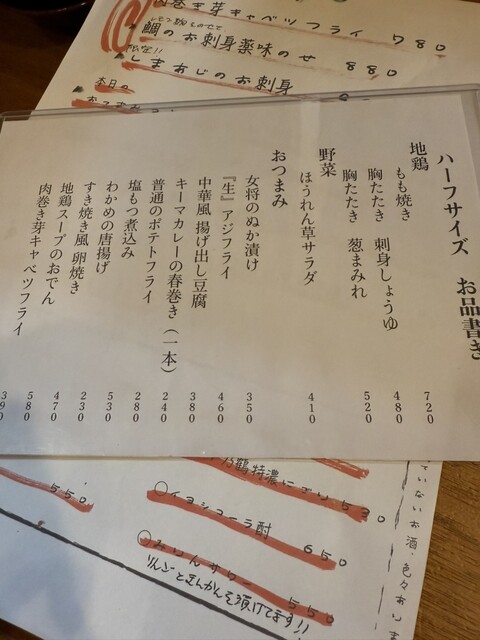 肉巻き芽キャベツフライ 780
鯛のお刺身薬味のせ 880
限定!!
しまあじのお刺身
本日の
ハーフサイズ お品書き
地鶏
もも焼き 720
胸たたき 刺身しょうゆ 480
胸たたき 葱まみれ 520
野菜
ほうれん草サラダ 410
おつまみ
女将のぬか漬け 350
『生』アジフライ 460
中華風 揚げ出し豆腐 380
キーマカレーの春巻き(一本) 240
普通のポテトフライ 280
塩もつ煮込み 530
わかめの唐揚げ 230
すき焼き風 卵焼き 470
地鶏スープのおでん 580
肉巻き芽キャベツフライ 390
鶴特濃にごり 530
550
イヨシコーラ酎 650
みりんサワー 550
りんごとみかんを漬けてます!!
ていないお酒、色々あります